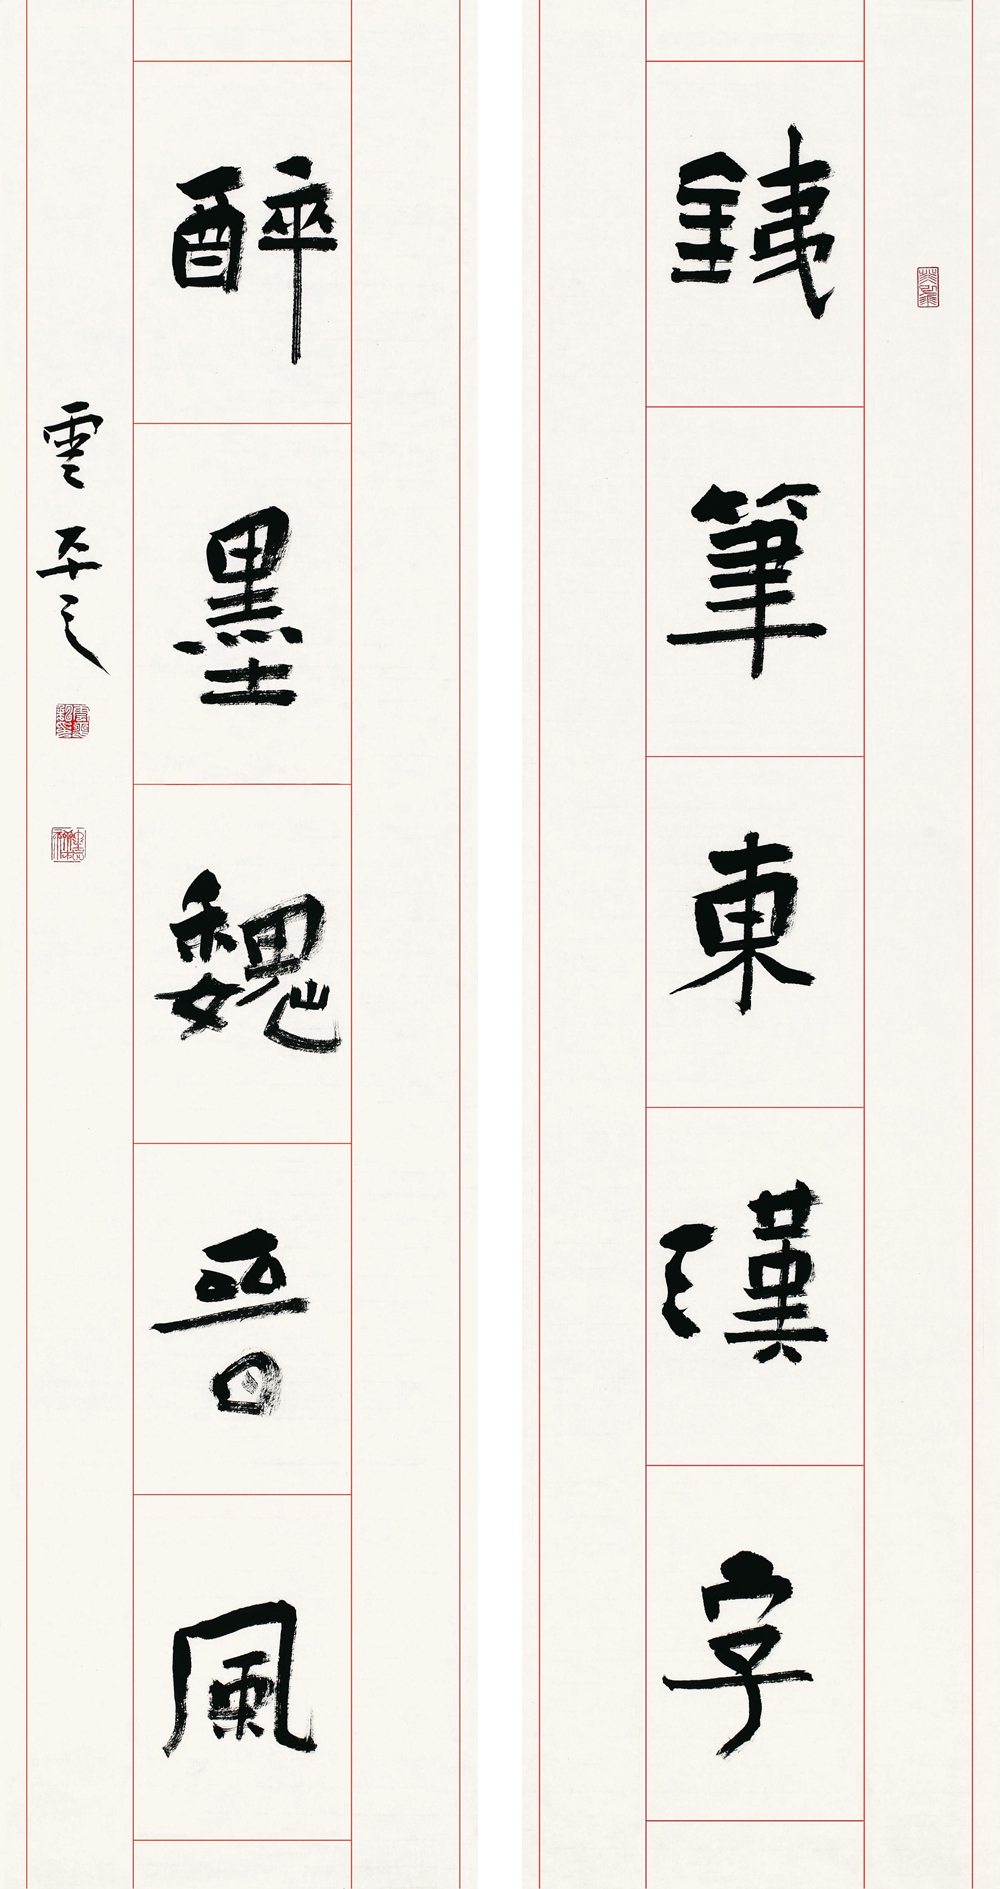 銕筆東漢字
醉墨魏晉風
雲平之